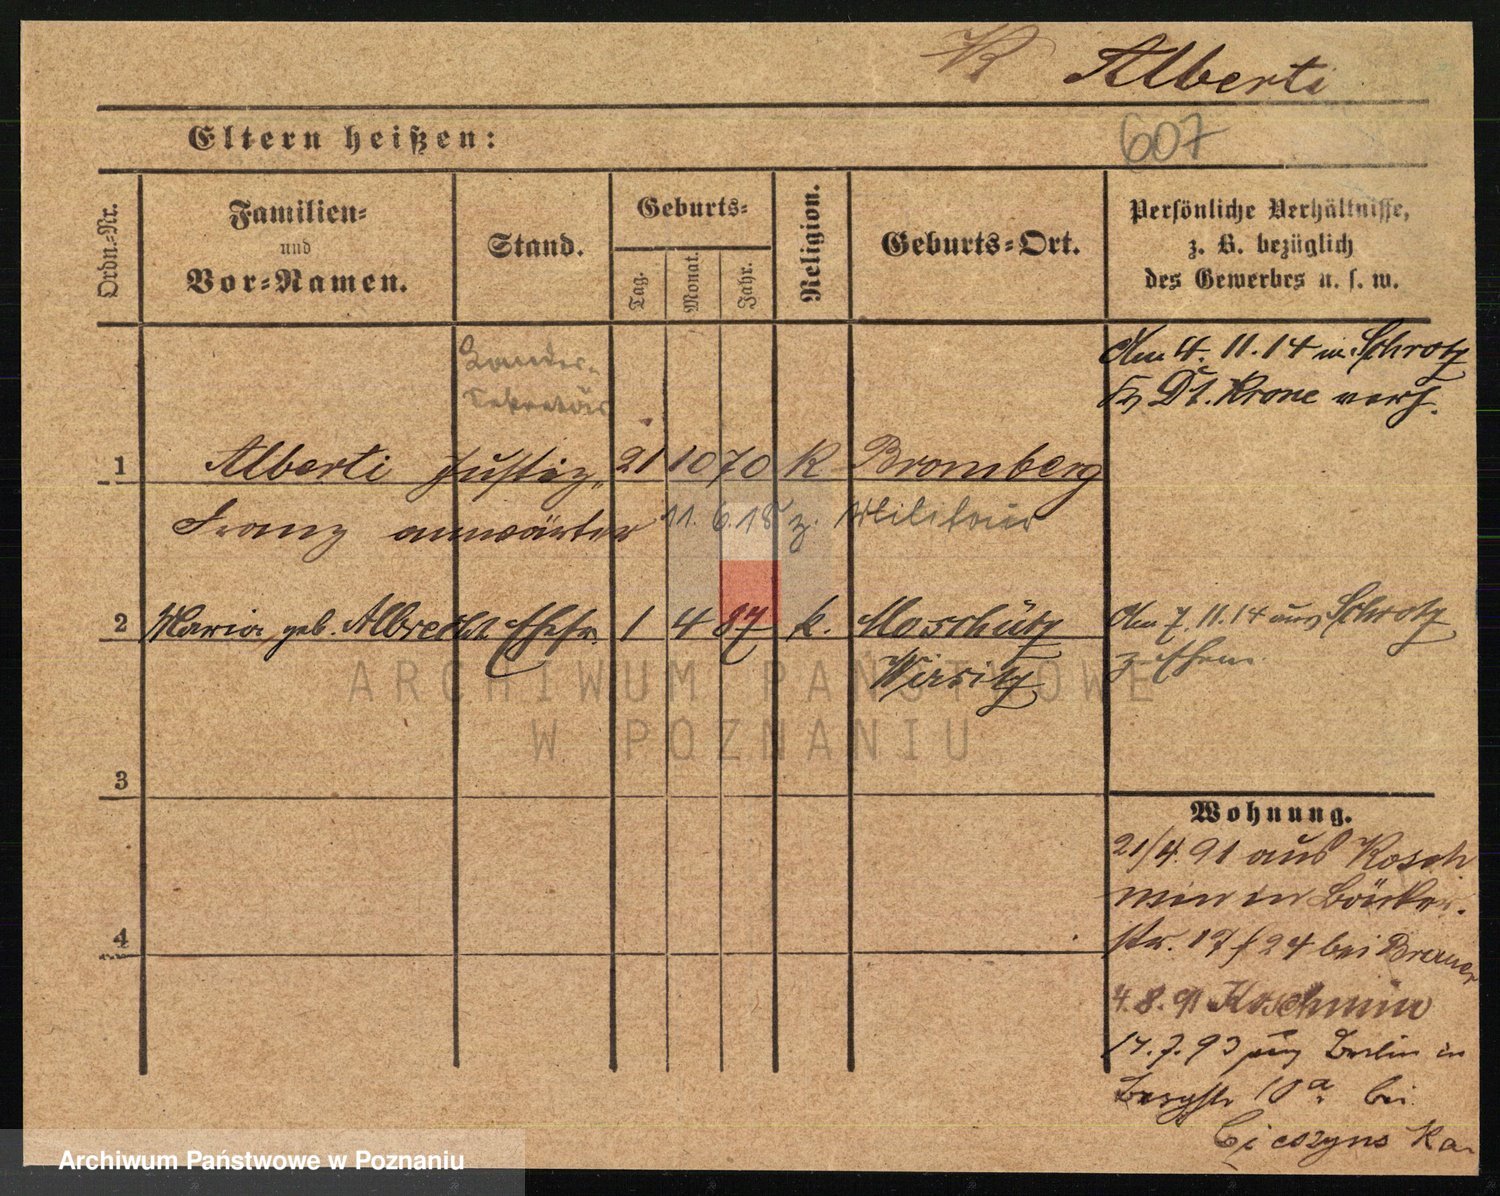 K Alberti
607
Eltern heißen:
Ordn.-Nr.
Familien-
und
Vor-Namen.
Stand.
Geburts-
Tag.
Monat.
Jahr.
Religion.
Geburts-Ort.
Persönliche Verhältnisse,
z. B. bezüglich
des Gewerbes u. s. w.
Am 4. 11. 14 in Schrotz
Dt. Krone verh.
Sekretär
1 Alberti Justiz- 21 10 70 K Bromberg
Franz anwärter 11. 6. 18 z. Militair
2 Maria, geb. Albrecht Ehefr. 1 4 87 k. Moschütz
Wirsitz
Am 7. 11. 14 aus Schrotz
z. Ehem.
3
4
Wohnung.
21/4. 91 aus Kosch
min in Bäcker-
str. 17 f 24 bei
4. 8. 91 Koschmin
14. 7. 93 Berlin in
Bergstr 10a bei
ARCHIWUM PAŃSTWOWE
W POZNANIU
Archiwum Państwowe w Poznaniu